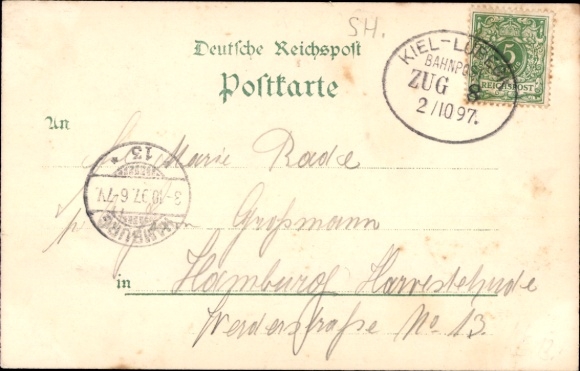 SH.
Deutsche Reichspost
Postkarte
KIEL-LÜBECK
BAHNPOST
ZUG 8
2/10 97.
5
REICHSPOST
An
Marie Rade
Großmann
in Hamburg Harvestehude
Werderstraße No 13.
HAMBURG
3-10.97.6-7V.
* 13